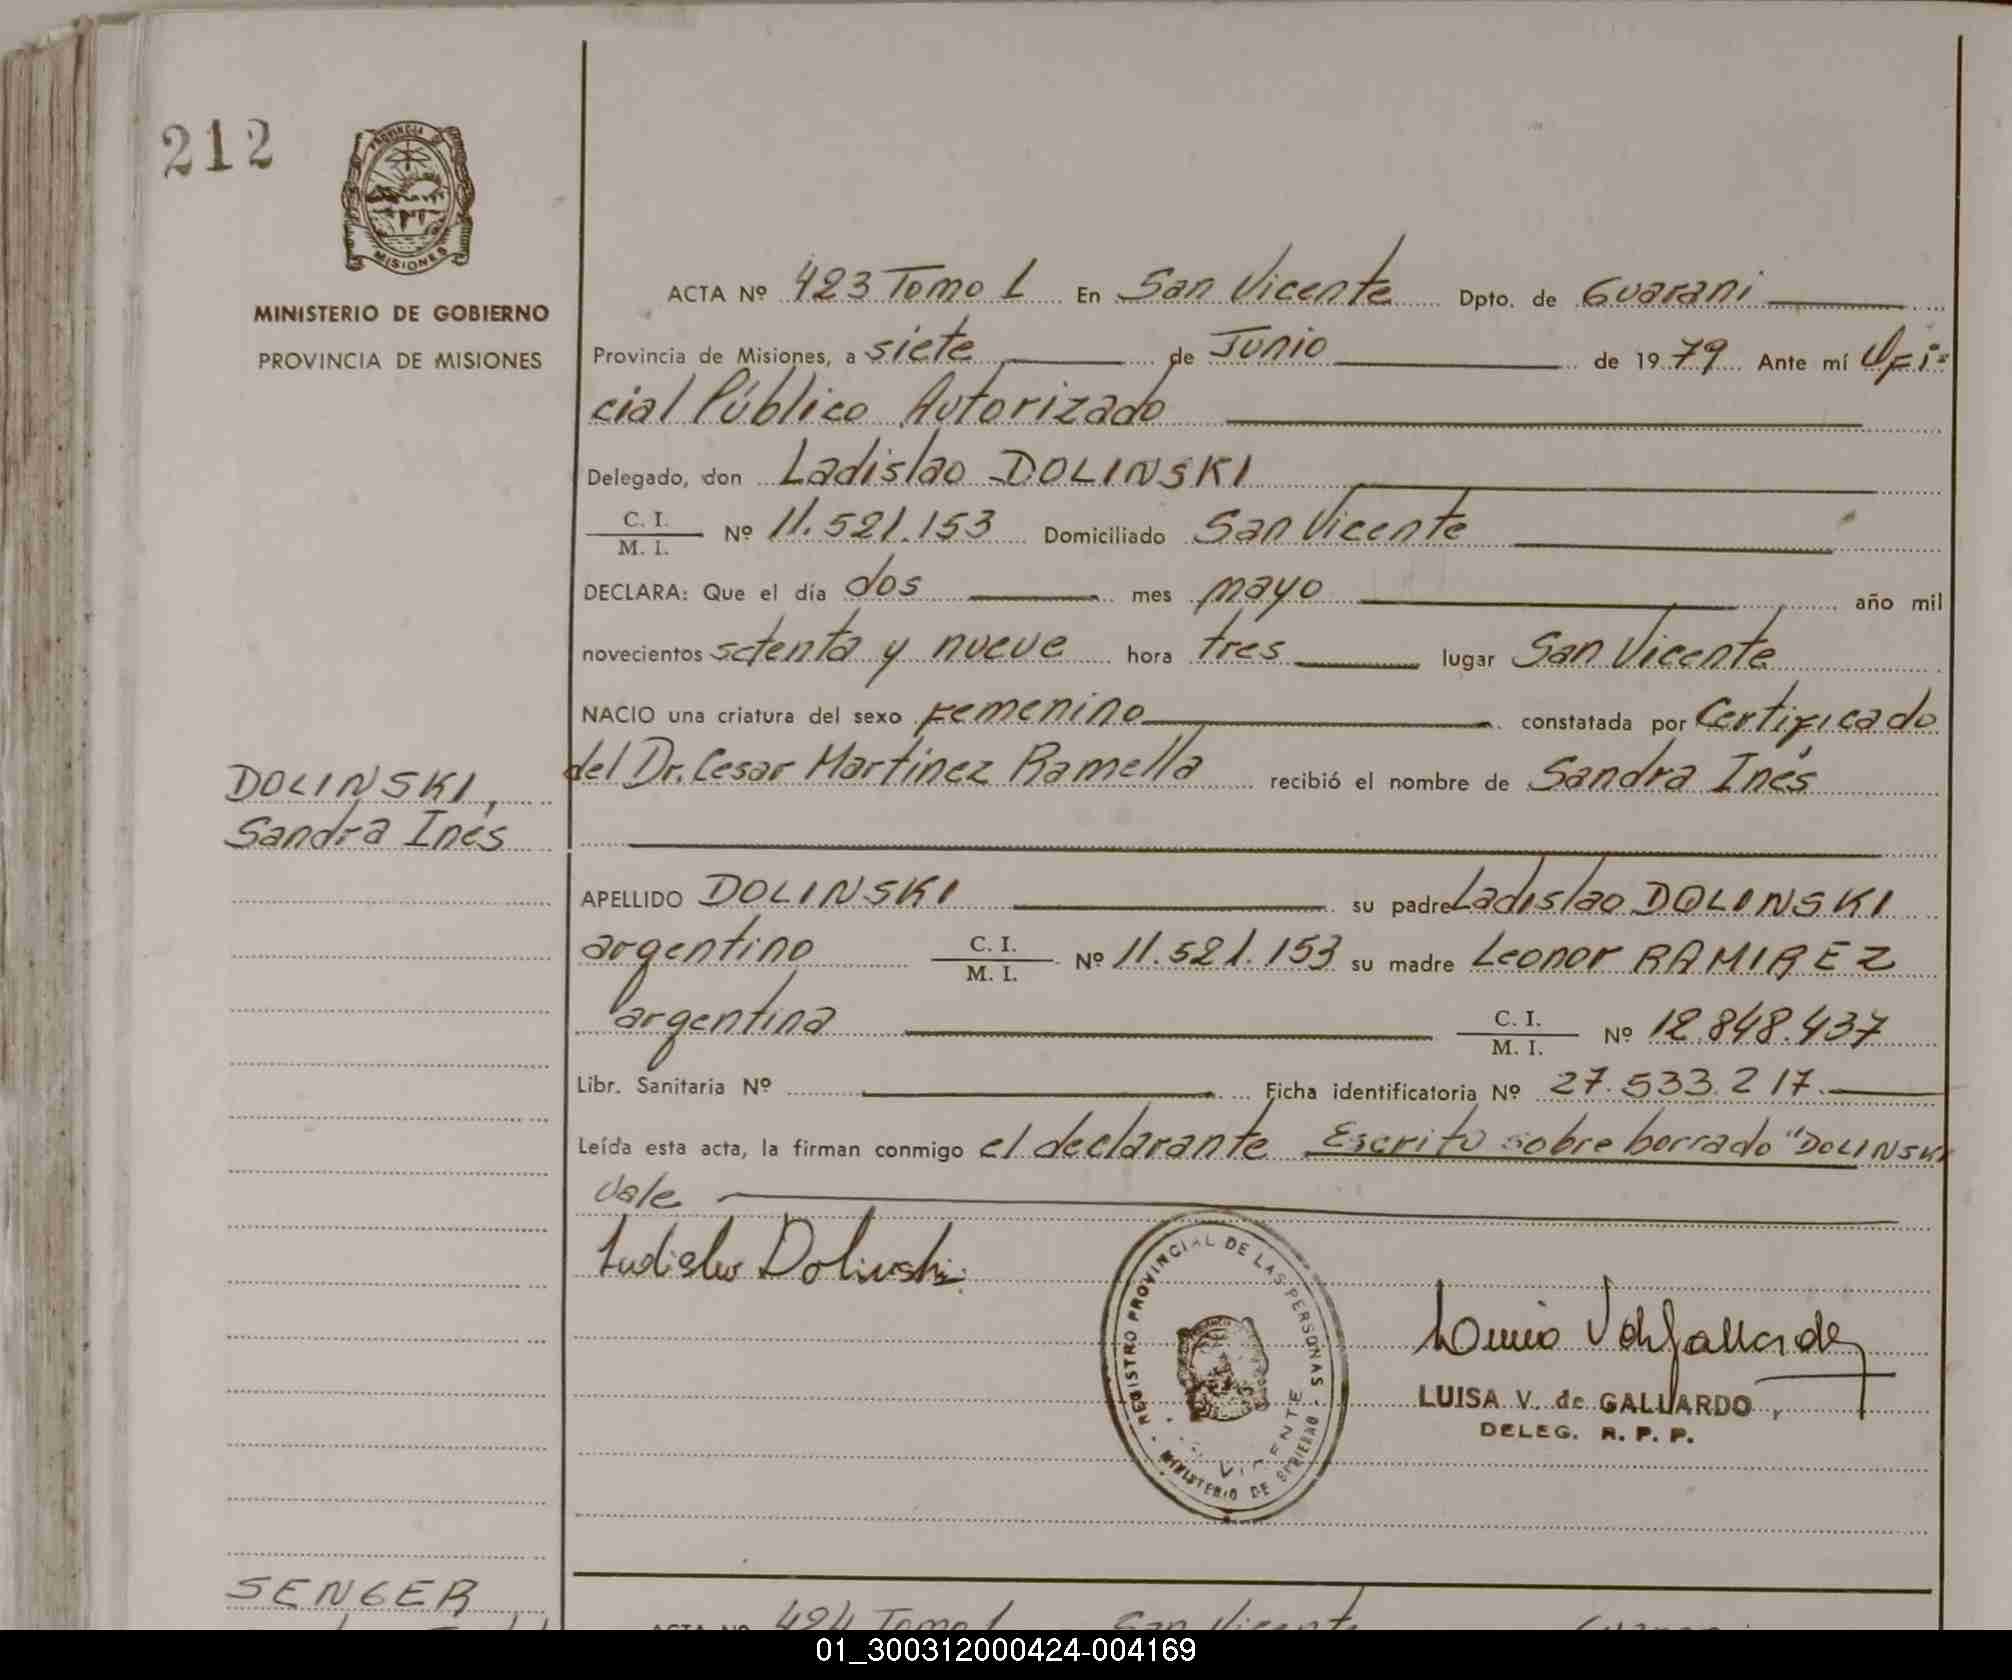 212
PROVINCIA DE
MISIONES
MINISTERIO DE GOBIERNO
PROVINCIA DE MISIONES
ACTA Nº 423 Tomo 1 En San Vicente Dpto. de Guarani
Provincia de Misiones, a siete de Junio de 1979 Ante mí Ofi=
cial Público Autorizado
Delegado, don Ladislao DOLINSKI
C. I.
M. I. Nº 11.521.153 Domiciliado San Vicente
DECLARA: Que el día dos mes mayo año mil
novecientos setenta y nueve hora tres lugar San Vicente
NACIO una criatura del sexo Femenino constatada por Certificado
del Dr. Cesar Martinez Ramella recibió el nombre de Sandra Inés
DOLINSKI,
Sandra Inés
APELLIDO DOLINSKI su padre Ladislao DOLINSKI
argentino C. I. M. I. Nº 11.521.153 su madre Leonor RAMIREZ
argentina C. I. M. I. Nº 12.848.437
Libr. Sanitaria Nº Ficha identificatoria Nº 27.533.217.
Leída esta acta, la firman conmigo el declarante Escrito sobre borrado "DOLINSKI
Vale
Ladislao Dolinski
REGISTRO PROVINCIAL DE LAS PERSONAS
MINISTERIO DE GOBIERNO
LUISA V. de GALLARDO
DELEG. R. P. P.
SENGER
ACTA Nº 424 Tomo 1 San Vicente
01_300312000424-004169